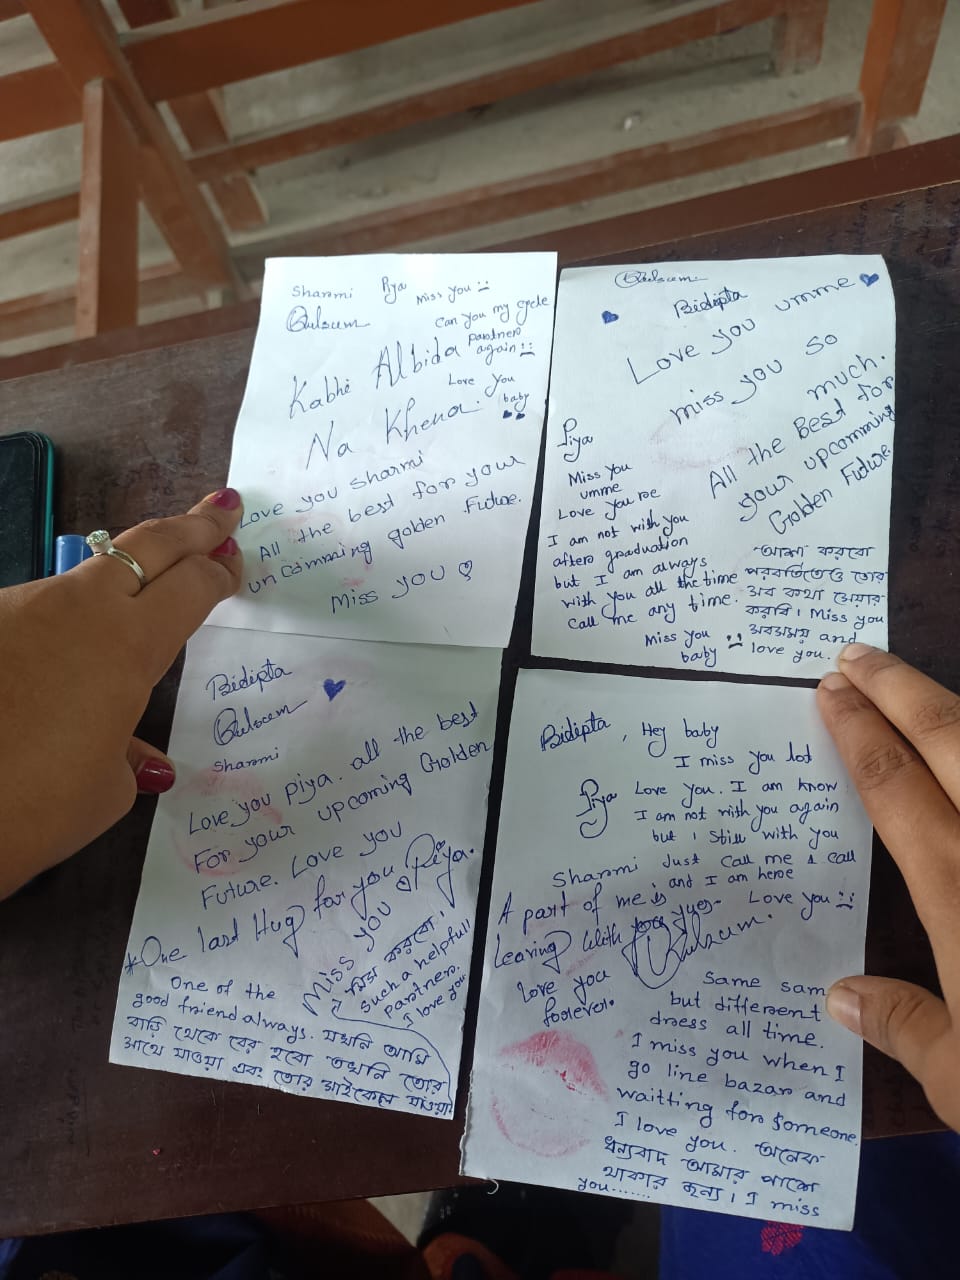 Sharmi Piya Miss you
Qulsum Can you my cycle
partner
again
Kabhi Albida
Love you
baby
Na Khena.
Love you Sharmi
All the best for your
upcomming golden Future.
Miss you
Qulsum
Bidipta
Love you umme
miss you so
much.
All the Best for
your upcomming
Golden Future.
Piya
Miss you
umme
Love you re
I am not with you
after graduation
but I am always
with you all the time
call me any time.
Miss you
baby
আশা করবো
পরবর্তিতেও তোর
সব কথা শেয়ার
করবি। Miss you
সবসময় and
love you.
Bidipta
Qulsum
Sharmi
Love you Piya. all the best
For your upcoming Golden
Future. Love you
Piya.
*One last Hug for you
Miss you
মিস করবো।
Such a helpfull
partner.
I love you
One of the
good friend always. যখনি আমি
বাড়ি থেকে বের হবো তখনি তোর
সাথে যাওয়া এবং তোর সাইকেলে যাওয়া
Bidipta, Hey baby
I miss you lot
Piya Love you. I am know
I am not with you again
but I still with you
Sharmi Just call me 1 call
and I am here
A part of me is Love you
Leaving With your
Qulsum.
love you
forever.
Same sam
but different
dress all time.
I miss you when I
go line bazar and
waitting for Someone.
I love you. অনেক
ধন্যবাদ আমার পাশে
থাকার জন্য। I miss
you.......